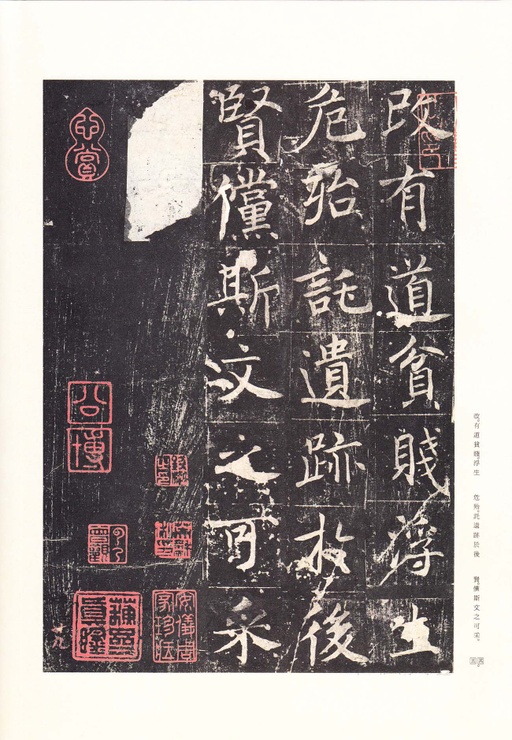 改有道貧賤浮生
危殆託遺跡於後
賢儻斯文之可采
公博
改有道貧賤浮生 危殆託遺跡於後 賢儻斯文之可采。